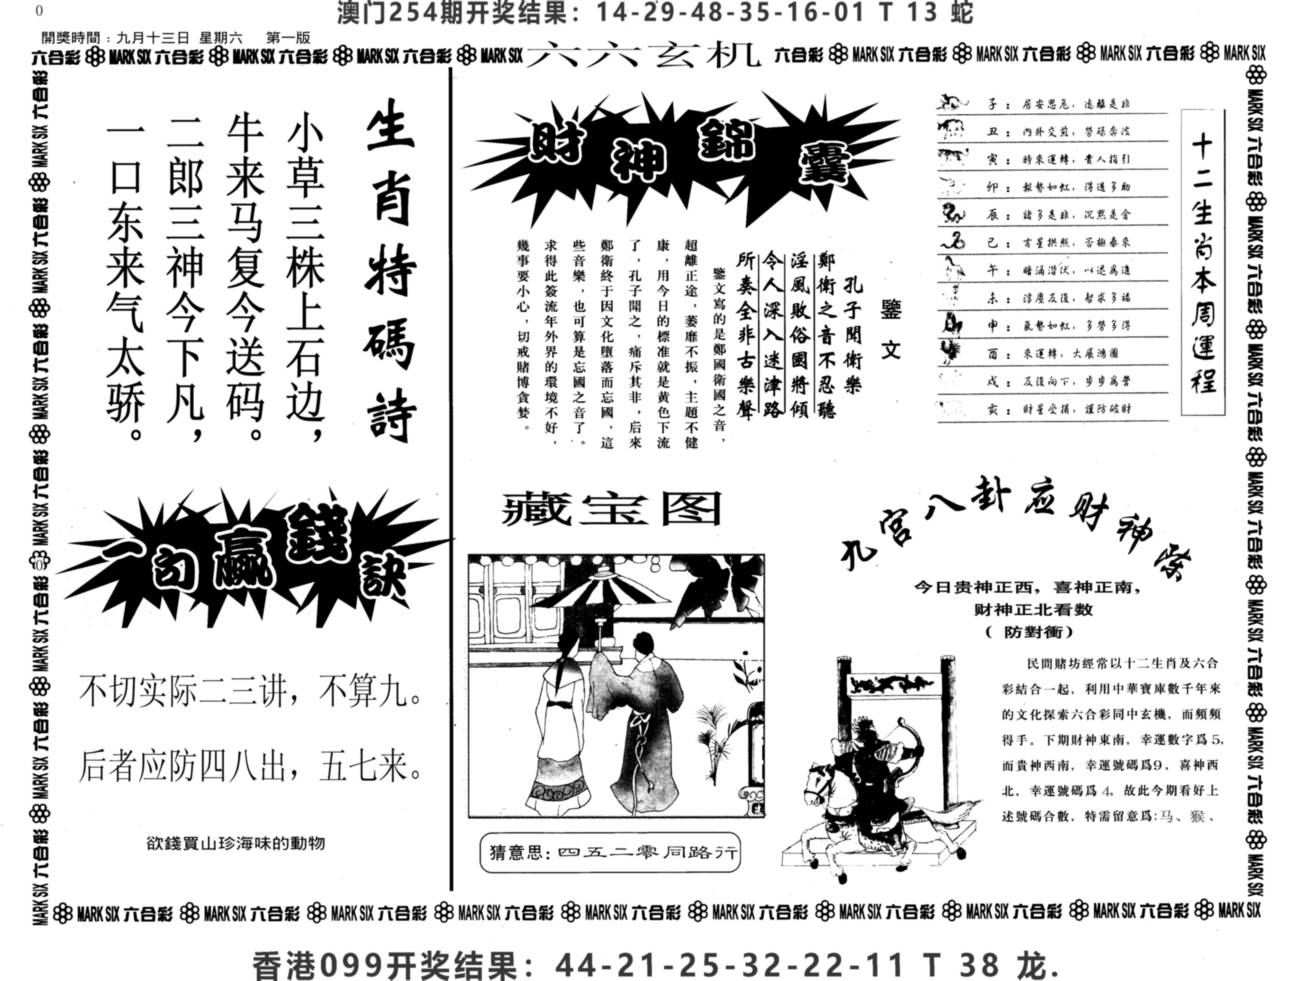 0
澳门254期开奖结果：14-29-48-35-16-01 T 13 蛇
開獎時間：九月十三日 星期六 第一版
六合彩 MARK SIX 六合彩 MARK SIX 六合彩 MARK SIX 六合彩 MARK SIX
六六玄机
六合彩 MARK SIX 六合彩 MARK SIX 六合彩 MARK SIX 六合彩 MARK SIX
生肖特碼詩
小草三株上石边，
牛来马复今送码。
二郎三神今下凡，
一口东来气太骄。
一句贏錢訣
不切实际二三讲，不算九。
后者应防四八出，五七来。
欲錢買山珍海味的動物
財神錦囊
鑒文
孔子聞衛樂
鄭衛之音不忍聽
淫風敗俗國將傾
令人深入迷津路
所奏全非古樂聲
鑒文寫的是鄭國衛國之音，
超離正途，萎靡不振，主題不健
康，用今日的標准就是黃色下流
了，孔子聞之，痛斥其非，后來
鄭衛終于因文化墮落而忘國，這
些音樂，也可算是忘國之音了。
求得此簽流年外界的環境不好，
幾事要小心，切戒賭博貪婪。
十二生肖本周運程
子：居安思危，遠離是非
丑：內外交煎，勞碌奔波
寅：時來運轉，貴人指引
卯：報勢如虹，得道多助
辰：諸多是非，沉默是金
巳：吉星拱照，否極泰來
午：暗涌潜伏，以退爲進
未：浮塵反復，暫求多福
申：氣勢如虹，多勞多得
酉：來運轉，大展鴻圖
戌：反復向下，步步爲營
亥：財星受損，謹防破財
藏宝图
猜意思：四五二零同路行
九宫八卦应财神際
今日贵神正西，喜神正南，
财神正北看数
（防對衝）
民間賭坊經常以十二生肖及六合
彩結合一起，利用中華寶庫數千年來
的文化探索六合彩同中玄機，而頻頻
得手。下期財神東南，幸運數字爲5，
而貴神西南，幸運號碼爲9，喜神西
北，幸運號碼爲4，故此今期看好上
述號碼合數，特需留意爲:马、猴、
MARK SIX 六合彩 MARK SIX 六合彩 MARK SIX 六合彩 MARK SIX 六合彩 MARK SIX 六合彩 MARK SIX 六合彩 MARK SIX 六合彩 MARK SIX 六合彩 MARK SIX 六合彩 MARK SIX
香港099开奖结果：44-21-25-32-22-11 T 38 龙.